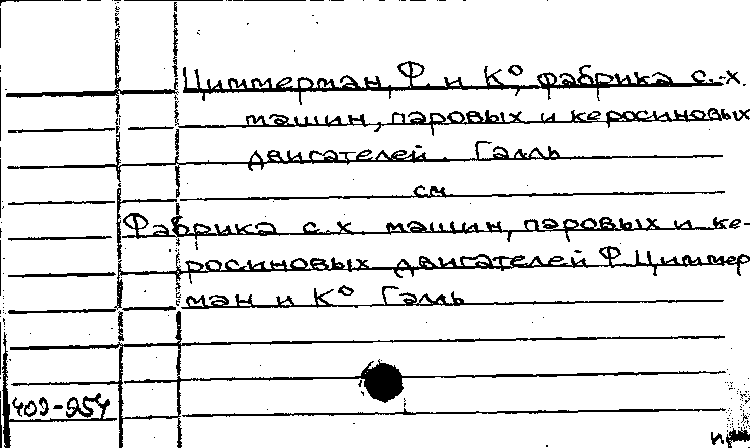 Циммерман, Ф. и К°, фабрика с.-х.
машин, паровых и керосиновых
двигателей. Галль
см
Фабрика с.х. машин, паровых и ке-
росиновых двигателей Ф. Циммер
ман и К° Галль
409-254